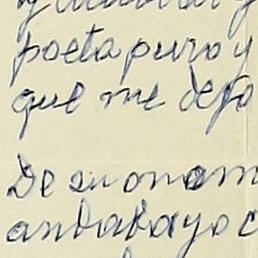 poeta puro y
que me dejo
De su onom
andaba yo c